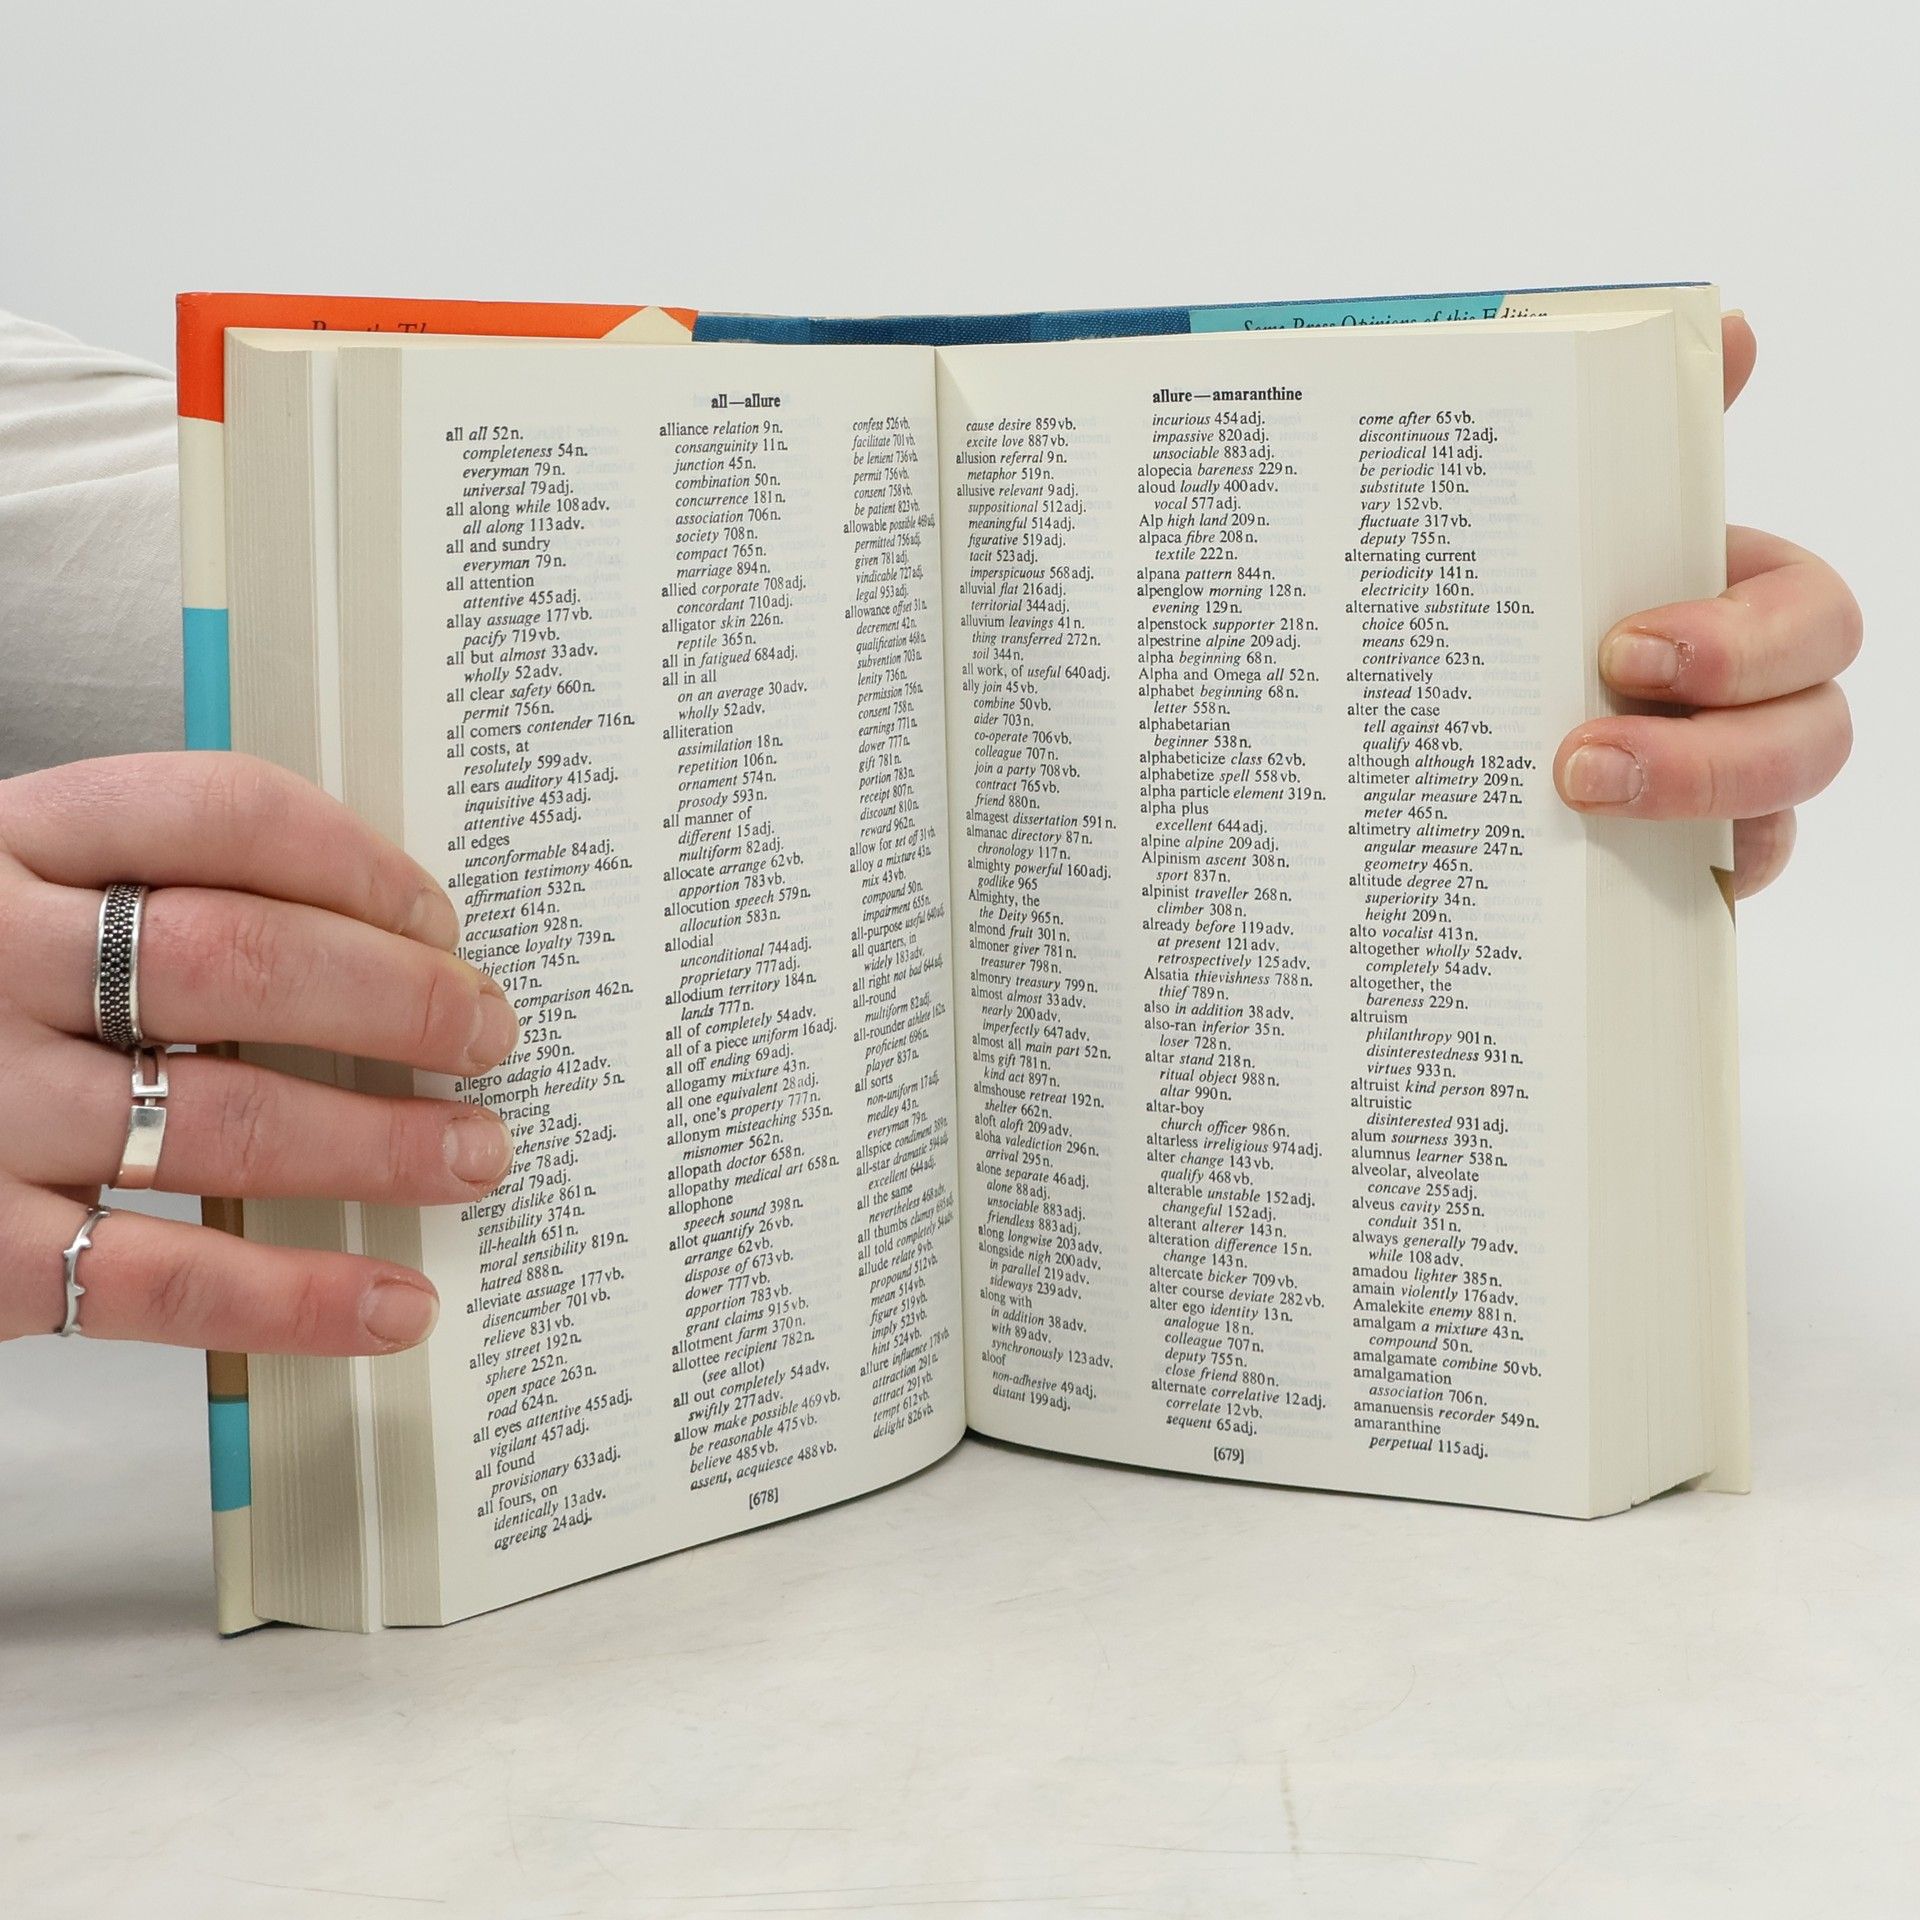 Some Press Opinions of this Edition
all—allure
all all 52n.
completeness 54n.
everyman 79n.
universal 79adj.
all along while 108adv.
all along 113adv.
all and sundry
everyman 79n.
all attention
attentive 455adj.
allay assuage 177vb.
pacify 719vb.
all but almost 33adv.
wholly 52adv.
all clear safety 660n.
permit 756n.
all comers contender 716n.
all costs, at
resolutely 599adv.
all ears auditory 415adj.
inquisitive 453adj.
attentive 455adj.
all edges
unconformable 84adj.
allegation testimony 466n.
affirmation 532n.
pretext 614n.
accusation 928n.
loyalty 739n.
745n.
917n.
comparison 462n.
519n.
523n.
590n.
allegro adagio 412adv.
heredity 5n.
32adj.
52adj.
78adj.
79adj.
allergy dislike 861n.
sensibility 374n.
ill-health 651n.
moral sensibility 819n.
hatred 888n.
alleviate assuage 177vb.
disencumber 701vb.
relieve 831vb.
alley street 192n.
sphere 252n.
open space 263n.
road 624n.
all eyes attentive 455adj.
vigilant 457adj.
all found
provisionary 633adj.
all fours, on
identically 13adv.
agreeing 24adj.
alliance relation 9n.
consanguinity 11n.
junction 45n.
combination 50n.
concurrence 181n.
association 706n.
society 708n.
compact 765n.
marriage 894n.
allied corporate 708adj.
concordant 710adj.
alligator skin 226n.
reptile 365n.
all in fatigued 684adj.
all in all
on an average 30adv.
wholly 52adv.
alliteration
assimilation 18n.
repetition 106n.
ornament 574n.
prosody 593n.
all manner of
different 15adj.
multiform 82adj.
allocate arrange 62vb.
apportion 783vb.
allocution speech 579n.
allocution 583n.
allodial
unconditional 744adj.
proprietary 777adj.
allodium territory 184n.
lands 777n.
all of completely 54adv.
all of a piece uniform 16adj.
all off ending 69adj.
allogamy mixture 43n.
all one equivalent 28adj.
all, one's property 777n.
allonym misteaching 535n.
misnomer 562n.
allopath doctor 658n.
allopathy medical art 658n.
allophone
speech sound 398n.
allot quantify 26vb.
arrange 62vb.
dispose of 673vb.
dower 777vb.
apportion 783vb.
grant claims 915vb.
allotment farm 370n.
allottee recipient 782n.
(see allot)
all out completely 54adv.
swiftly 277adv.
allow make possible 469vb.
be reasonable 475vb.
believe 485vb.
assent, acquiesce 488vb.
confess 526vb.
facilitate 701vb.
be lenient 736vb.
permit 756vb.
consent 758vb.
be patient 823vb.
allowable possible 469adj.
permitted 756adj.
given 781adj.
vindicable 727adj.
legal 953adj.
allowance offset 31n.
decrement 42n.
qualification 468n.
subvention 703n.
lenity 736n.
permission 756n.
consent 758n.
earnings 771n.
dower 777n.
gift 781n.
portion 783n.
receipt 807n.
discount 810n.
reward 962n.
allow for set off 31vb.
alloy a mixture 43n.
mix 43vb.
compound 50n.
impairment 655n.
all-purpose useful 640adj.
all quarters, in
widely 183adv.
all right not bad 644adj.
all-round
multiform 82adj.
all-rounder athlete 162n.
proficient 696n.
player 837n.
all sorts
non-uniform 17adj.
medley 43n.
everyman 79n.
allspice condiment 389n.
all-star dramatic 594adj.
excellent 644adj.
all the same
nevertheless 468adv.
all thumbs clumsy 695adj.
all told completely 54adv.
allude relate 9vb.
propound 512vb.
mean 514vb.
figure 519vb.
imply 523vb.
hint 524vb.
allure influence 178vb.
attraction 291n.
attract 291vb.
tempt 612vb.
delight 826vb.
[678]
allure—amaranthine
cause desire 859vb.
excite love 887vb.
allusion referral 9n.
metaphor 519n.
allusive relevant 9adj.
suppositional 512adj.
meaningful 514adj.
figurative 519adj.
tacit 523adj.
imperspicuous 568adj.
alluvial flat 216adj.
territorial 344adj.
alluvium leavings 41n.
thing transferred 272n.
soil 344n.
all work, of useful 640adj.
ally join 45vb.
combine 50vb.
aider 703n.
co-operate 706vb.
colleague 707n.
join a party 708vb.
contract 765vb.
friend 880n.
almagest dissertation 591n.
almanac directory 87n.
chronology 117n.
almighty powerful 160adj.
godlike 965
Almighty, the
the Deity 965n.
almond fruit 301n.
almoner giver 781n.
treasurer 798n.
almonry treasury 799n.
almost almost 33adv.
nearly 200adv.
imperfectly 647adv.
almost all main part 52n.
alms gift 781n.
kind act 897n.
almshouse retreat 192n.
shelter 662n.
aloft aloft 209adv.
aloha valediction 296n.
arrival 295n.
alone separate 46adj.
alone 88adj.
unsociable 883adj.
friendless 883adj.
along longwise 203adv.
alongside nigh 200adv.
in parallel 219adv.
sideways 239adv.
along with
in addition 38adv.
with 89adv.
synchronously 123adv.
aloof
non-adhesive 49adj.
distant 199adj.
incurious 454adj.
impassive 820adj.
unsociable 883adj.
alopecia bareness 229n.
aloud loudly 400adv.
vocal 577adj.
Alp high land 209n.
alpaca fibre 208n.
textile 222n.
alpana pattern 844n.
alpenglow morning 128n.
evening 129n.
alpenstock supporter 218n.
alpestrine alpine 209adj.
alpha beginning 68n.
Alpha and Omega all 52n.
alphabet beginning 68n.
letter 558n.
alphabetarian
beginner 538n.
alphabeticize class 62vb.
alphabetize spell 558vb.
alpha particle element 319n.
alpha plus
excellent 644adj.
alpine alpine 209adj.
Alpinism ascent 308n.
sport 837n.
alpinist traveller 268n.
climber 308n.
already before 119adv.
at present 121adv.
retrospectively 125adv.
Alsatia thievishness 788n.
thief 789n.
also in addition 38adv.
also-ran inferior 35n.
loser 728n.
altar stand 218n.
ritual object 988n.
altar 990n.
altar-boy
church officer 986n.
altarless irreligious 974adj.
alter change 143vb.
qualify 468vb.
alterable unstable 152adj.
changeful 152adj.
alterant alterer 143n.
alteration difference 15n.
change 143n.
altercate bicker 709vb.
alter course deviate 282vb.
alter ego identity 13n.
analogue 18n.
colleague 707n.
deputy 755n.
close friend 880n.
alternate correlative 12adj.
correlate 12vb.
sequent 65adj.
come after 65vb.
discontinuous 72adj.
periodical 141adj.
be periodic 141vb.
substitute 150n.
vary 152vb.
fluctuate 317vb.
deputy 755n.
alternating current
periodicity 141n.
electricity 160n.
alternative substitute 150n.
choice 605n.
means 629n.
contrivance 623n.
alternatively
instead 150adv.
alter the case
tell against 467vb.
qualify 468vb.
although although 182adv.
altimeter altimetry 209n.
angular measure 247n.
meter 465n.
altimetry altimetry 209n.
angular measure 247n.
geometry 465n.
altitude degree 27n.
superiority 34n.
height 209n.
alto vocalist 413n.
altogether wholly 52adv.
completely 54adv.
altogether, the
bareness 229n.
altruism
philanthropy 901n.
disinterestedness 931n.
virtues 933n.
altruist kind person 897n.
altruistic
disinterested 931adj.
alum sourness 393n.
alumnus learner 538n.
alveolar, alveolate
concave 255adj.
alveus cavity 255n.
conduit 351n.
always generally 79adv.
while 108adv.
amadou lighter 385n.
amain violently 176adv.
Amalekite enemy 881n.
amalgam a mixture 43n.
compound 50n.
amalgamate combine 50vb.
amalgamation
association 706n.
amanuensis recorder 549n.
amaranthine
perpetual 115adj.
[679]